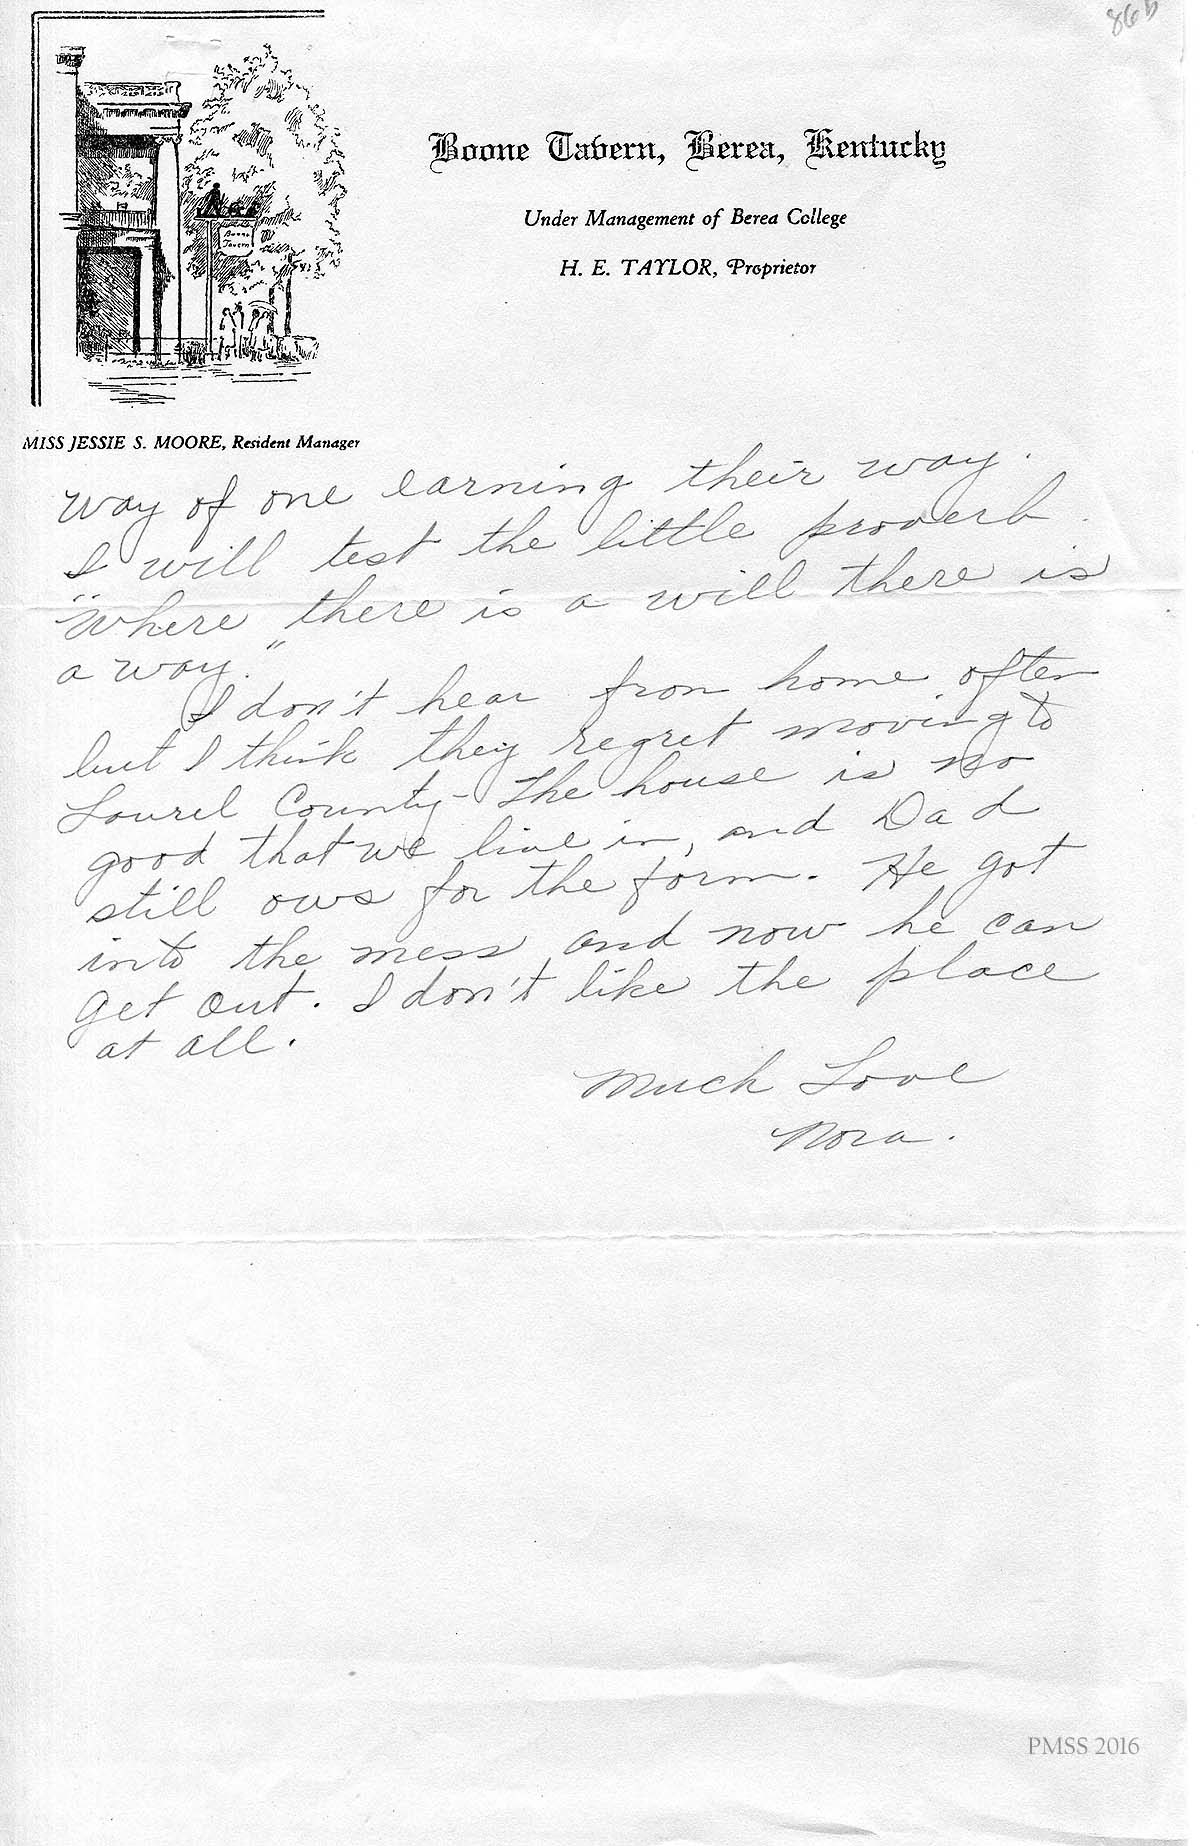 86b
Boone Tavern, Berea, Kentucky
Under Management of Berea College
H. E. TAYLOR, Proprietor
Boone
Tavern
MISS JESSIE S. MOORE, Resident Manager
way of one earning their way.
I will test the little proverb.
"Where there is a will there is
a way."
I don't hear from home often
but I think they regret moving to
Laurel County - The house is no
good that we live in, and Dad
still ows for the farm. He got
into the mess and now he can
get out. I don't like the place
at all.
Much Love
Nora.
PMSS 2016